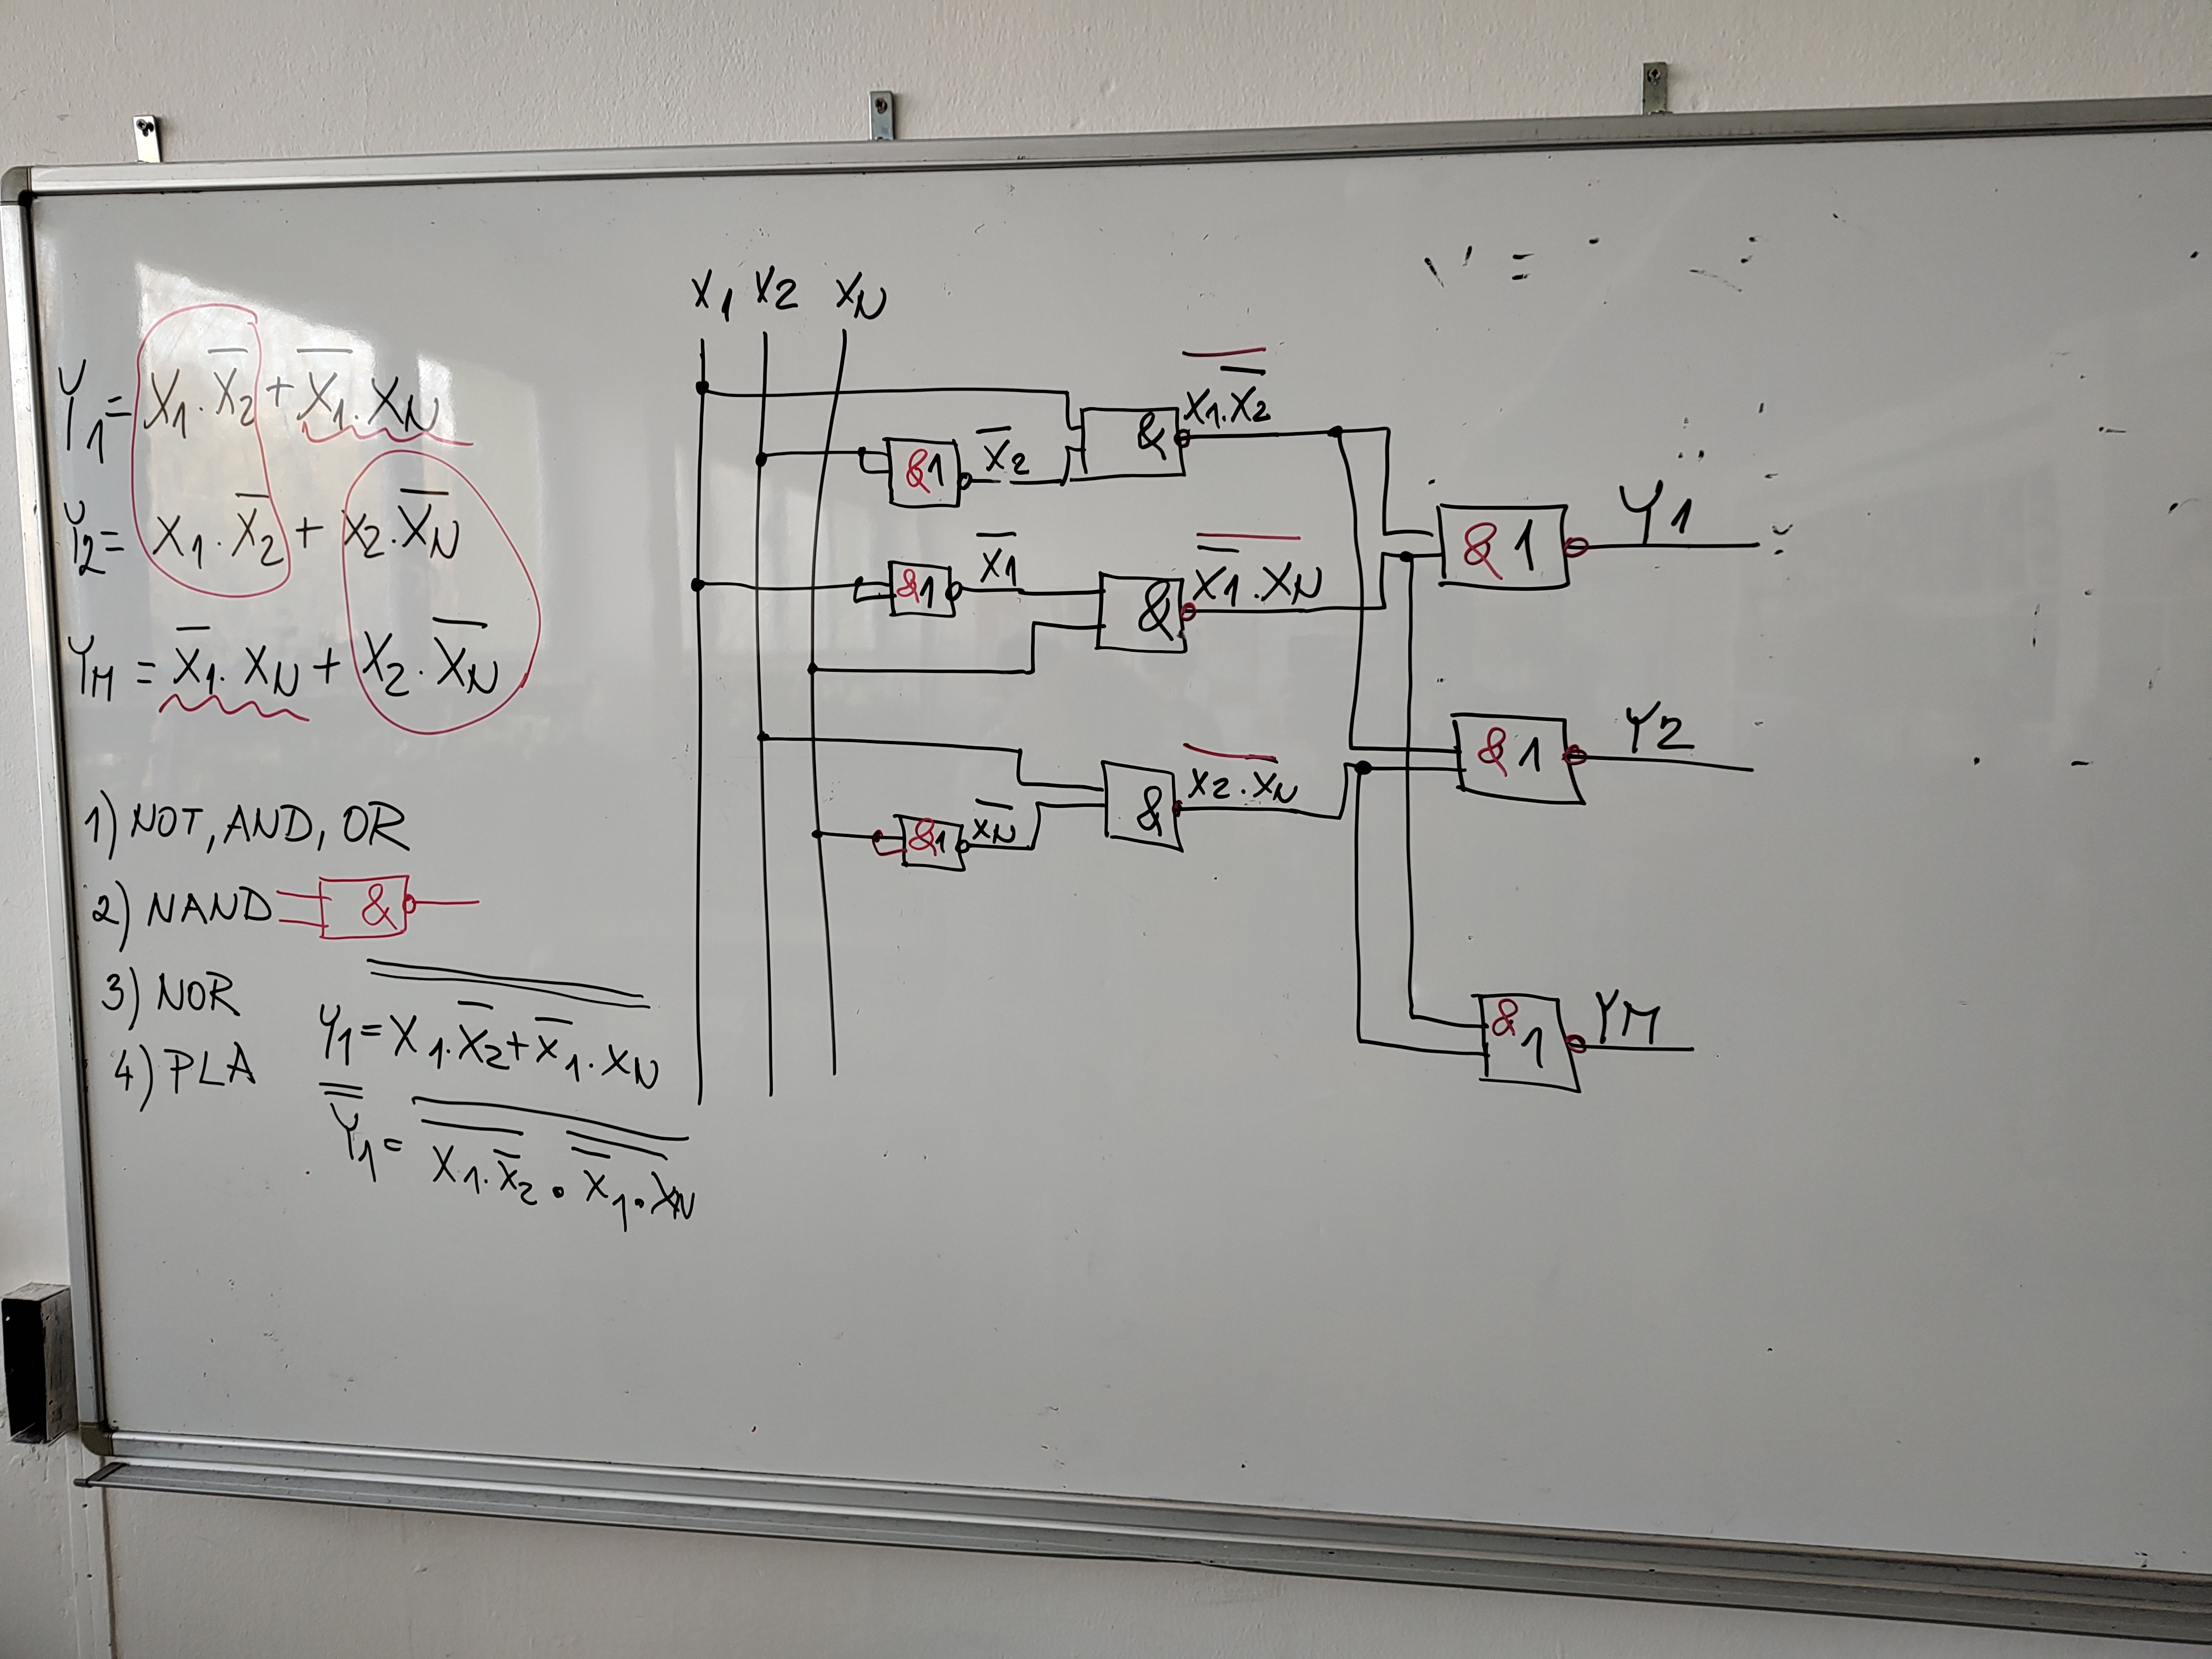 Y₁ = X₁.X̅₂ + X̅₁.X_N
Y₂ = X₁.X̅₂ + X₂.X̅_N
Y_M = X̅₁.X_N + X₂.X̅_N
1) NOT, AND, OR
2) NAND &
3) NOR
4) PLA
Y₁ = X₁.X̅₂ + X̅₁.X_N
Y₁ = X₁.X̅₂ . X̅₁.X_N
X1 X2 XN
&1 X̅2
& X1.X̅2
&1 X̅1
& X̅1.XN
&1 X̅N
& X2.X̅N
&1 Y1
&1 Y2
&1 YM